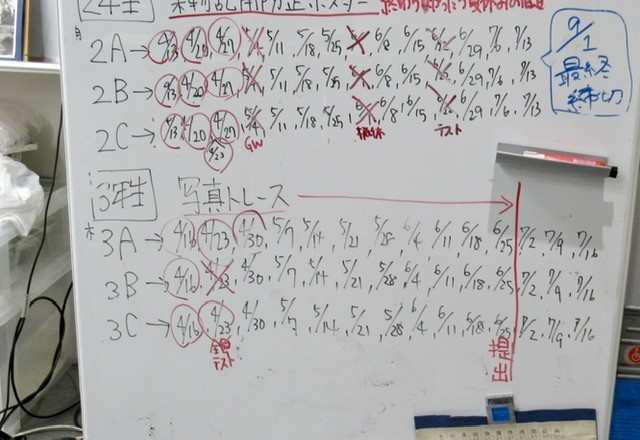 2年生
月
2A→ 4/13, 4/20, 4/27, 5/4, 5/11, 5/18, 5/25, 6/1, 6/8, 6/15, 6/22, 6/29, 7/6, 7/13
2B→ 4/13, 4/20, 4/27, 5/4, 5/11, 5/18, 5/25, 6/1, 6/8, 6/15, 6/22, 6/29, 7/6, 7/13
2C→ 4/13, 4/20, 4/27, 5/4, 5/11, 5/18, 5/25, 6/1, 6/8, 6/15, 6/22, 6/29, 7/6, 7/13
4/23 GW テスト
9/1
最終
締切
3年生 写真トレース →
木
3A→ 4/16, 4/23, 4/30, 5/7, 5/14, 5/21, 5/28, 6/4, 6/11, 6/18, 6/25, 7/2, 7/9, 7/16
3B→ 4/16, 4/23, 4/30, 5/7, 5/14, 5/21, 5/28, 6/4, 6/11, 6/18, 6/25, 7/2, 7/9, 7/16
3C→ 4/16, 4/23, 4/30, 5/7, 5/14, 5/21, 5/28, 6/4, 6/11, 6/18, 6/25, 7/2, 7/9, 7/16
全国
テスト
提出